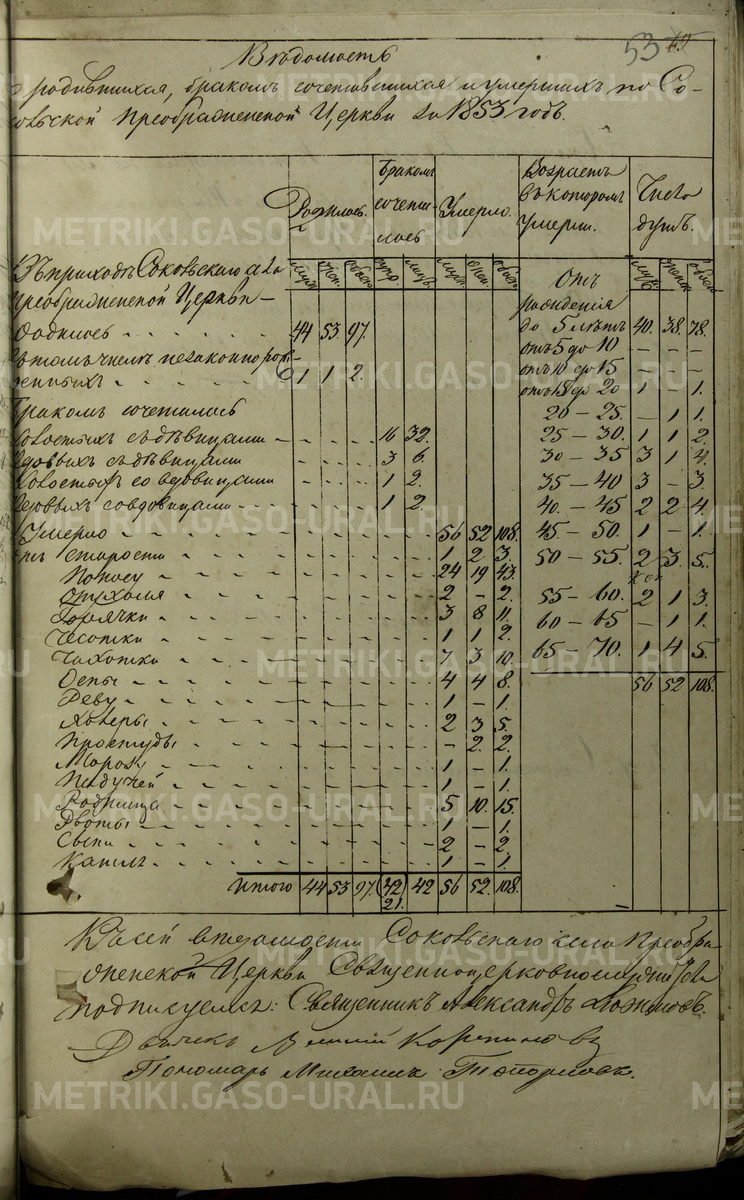 53
Вѣдомость
родившихся, бракомъ сочетавшихся и умершихъ по Со-
ковской Преображенской Церкви за 1853 годъ.
Родилось. Бракомъ сочета- лось Умерло. Возрастъ въ которомъ умерли. Число душъ.
Въ приходѣ Соковскаго села
Преображенской Церкви —
муж. жен. обоего супр. лицъ муж. жен. обоего Отъ рожденія муж. женск. обоего
родилось 44 53 97. до 5 лѣтъ 40. 38. 78.
въ томъ числѣ незаконнорож- отъ 5 до 10 — — —
денныхъ 1 1 2. отъ 10 до 15 — — —
отъ 15 до 20 1 — 1.
Бракомъ сочеталось 20 — 25. — 1 1.
холостыхъ съ дѣвицами 16 32. 25 — 30. 1 1 2.
вдовыхъ съ дѣвицами 3 6. 30 — 35 3 1 4.
холостыхъ со вдовицами 1 2. 35 — 40 3 — 3.
вдовыхъ со вдовицами 1 2. 40 — 45 2 2 4.
Умерло 56 52 108. 45 — 50. 1 — 1.
отъ старости 1 2 3. 50 — 55. 2 3. 5.
Поносу 24 19 43.
Опухоли 2 — 2. 55 — 60. 2 1 3.
Горячки 3 8 11. 60 — 65 — 1 1.
Чесотки 1 1 2.
Чахотки 7 3 10. 65 — 70. 1 4 5.
Оспы 4 4 8. 56 52 108.
Реву 1 — 1.
Холеры 2 3 5.
Простуды — 2. 2.
1 — 1.
Падучей 1 — 1.
Родимца 5 10. 15.
Рвоты 1 — 1.
Сыпи 2 — 2.
Кашля 1 — 1.
Итого 44 53 97. 42 42 56 52. 108.
21.
Къ сей вѣдомости Соковскаго села Преобра-
женской Церкви Священноцерковнослужители
подписуемся: Священникъ Александръ
Дьячекъ
Пономарь Михаилъ Топорковъ.
METRIKI.GASO-URAL.RU